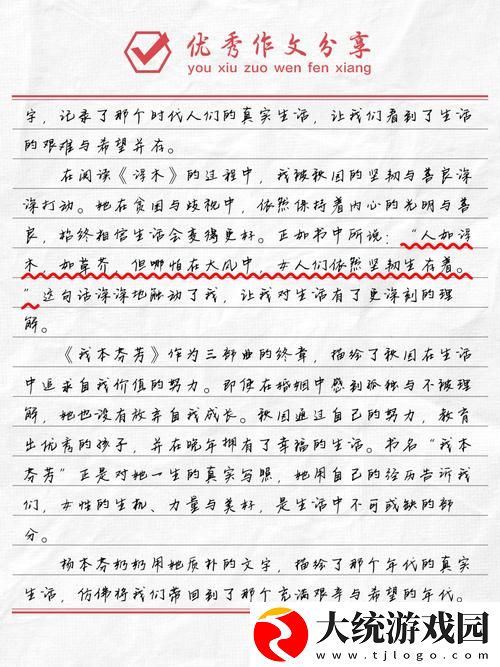 优秀作文分享
you xiu zuo wen fen xiang
字，记录了那个时代人们的真实生活，让我们看到了生活
的艰难与希望并存。
在阅读《浮木》的过程中，我被秋园的坚韧与善良深
深打动。她在贫困与歧视中，依然保持着内心的光明与善
良，始终相信生活会变得更好。正如书中所说：“人如浮
木，如草芥，但哪怕在大风中，女人们依然坚韧生存着。
”这句话深深地触动了我，让我对生活有了更深刻的理
解。
《我本芬芳》作为三部曲的终章，描绘了秋园在生活
中追求自我价值的努力。即便在婚姻中感到孤独与不被理
解，她也没有放弃自我成长。秋园通过自己的努力，教育
出优秀的孩子，并在晚年拥有了幸福的生活。书名“我本
芬芳”正是对她一生的真实写照，她用自己的经历告诉我
们，女性的生机、力量与美好，是生活中不可或缺的部
分。
杨本芬奶奶用她质朴的文字，描绘了那个年代的真实
生活，仿佛将我们带回到了那个充满艰辛与希望的年代。
大统游戏园
www.tjlogo.com